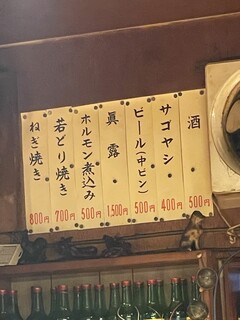 酒 500円
サゴヤシ 400円
ビール(中ビン) 500円
眞露 1,500円
ホルモン煮込み 500円
若どり焼き 700円
ねぎ焼き 800円